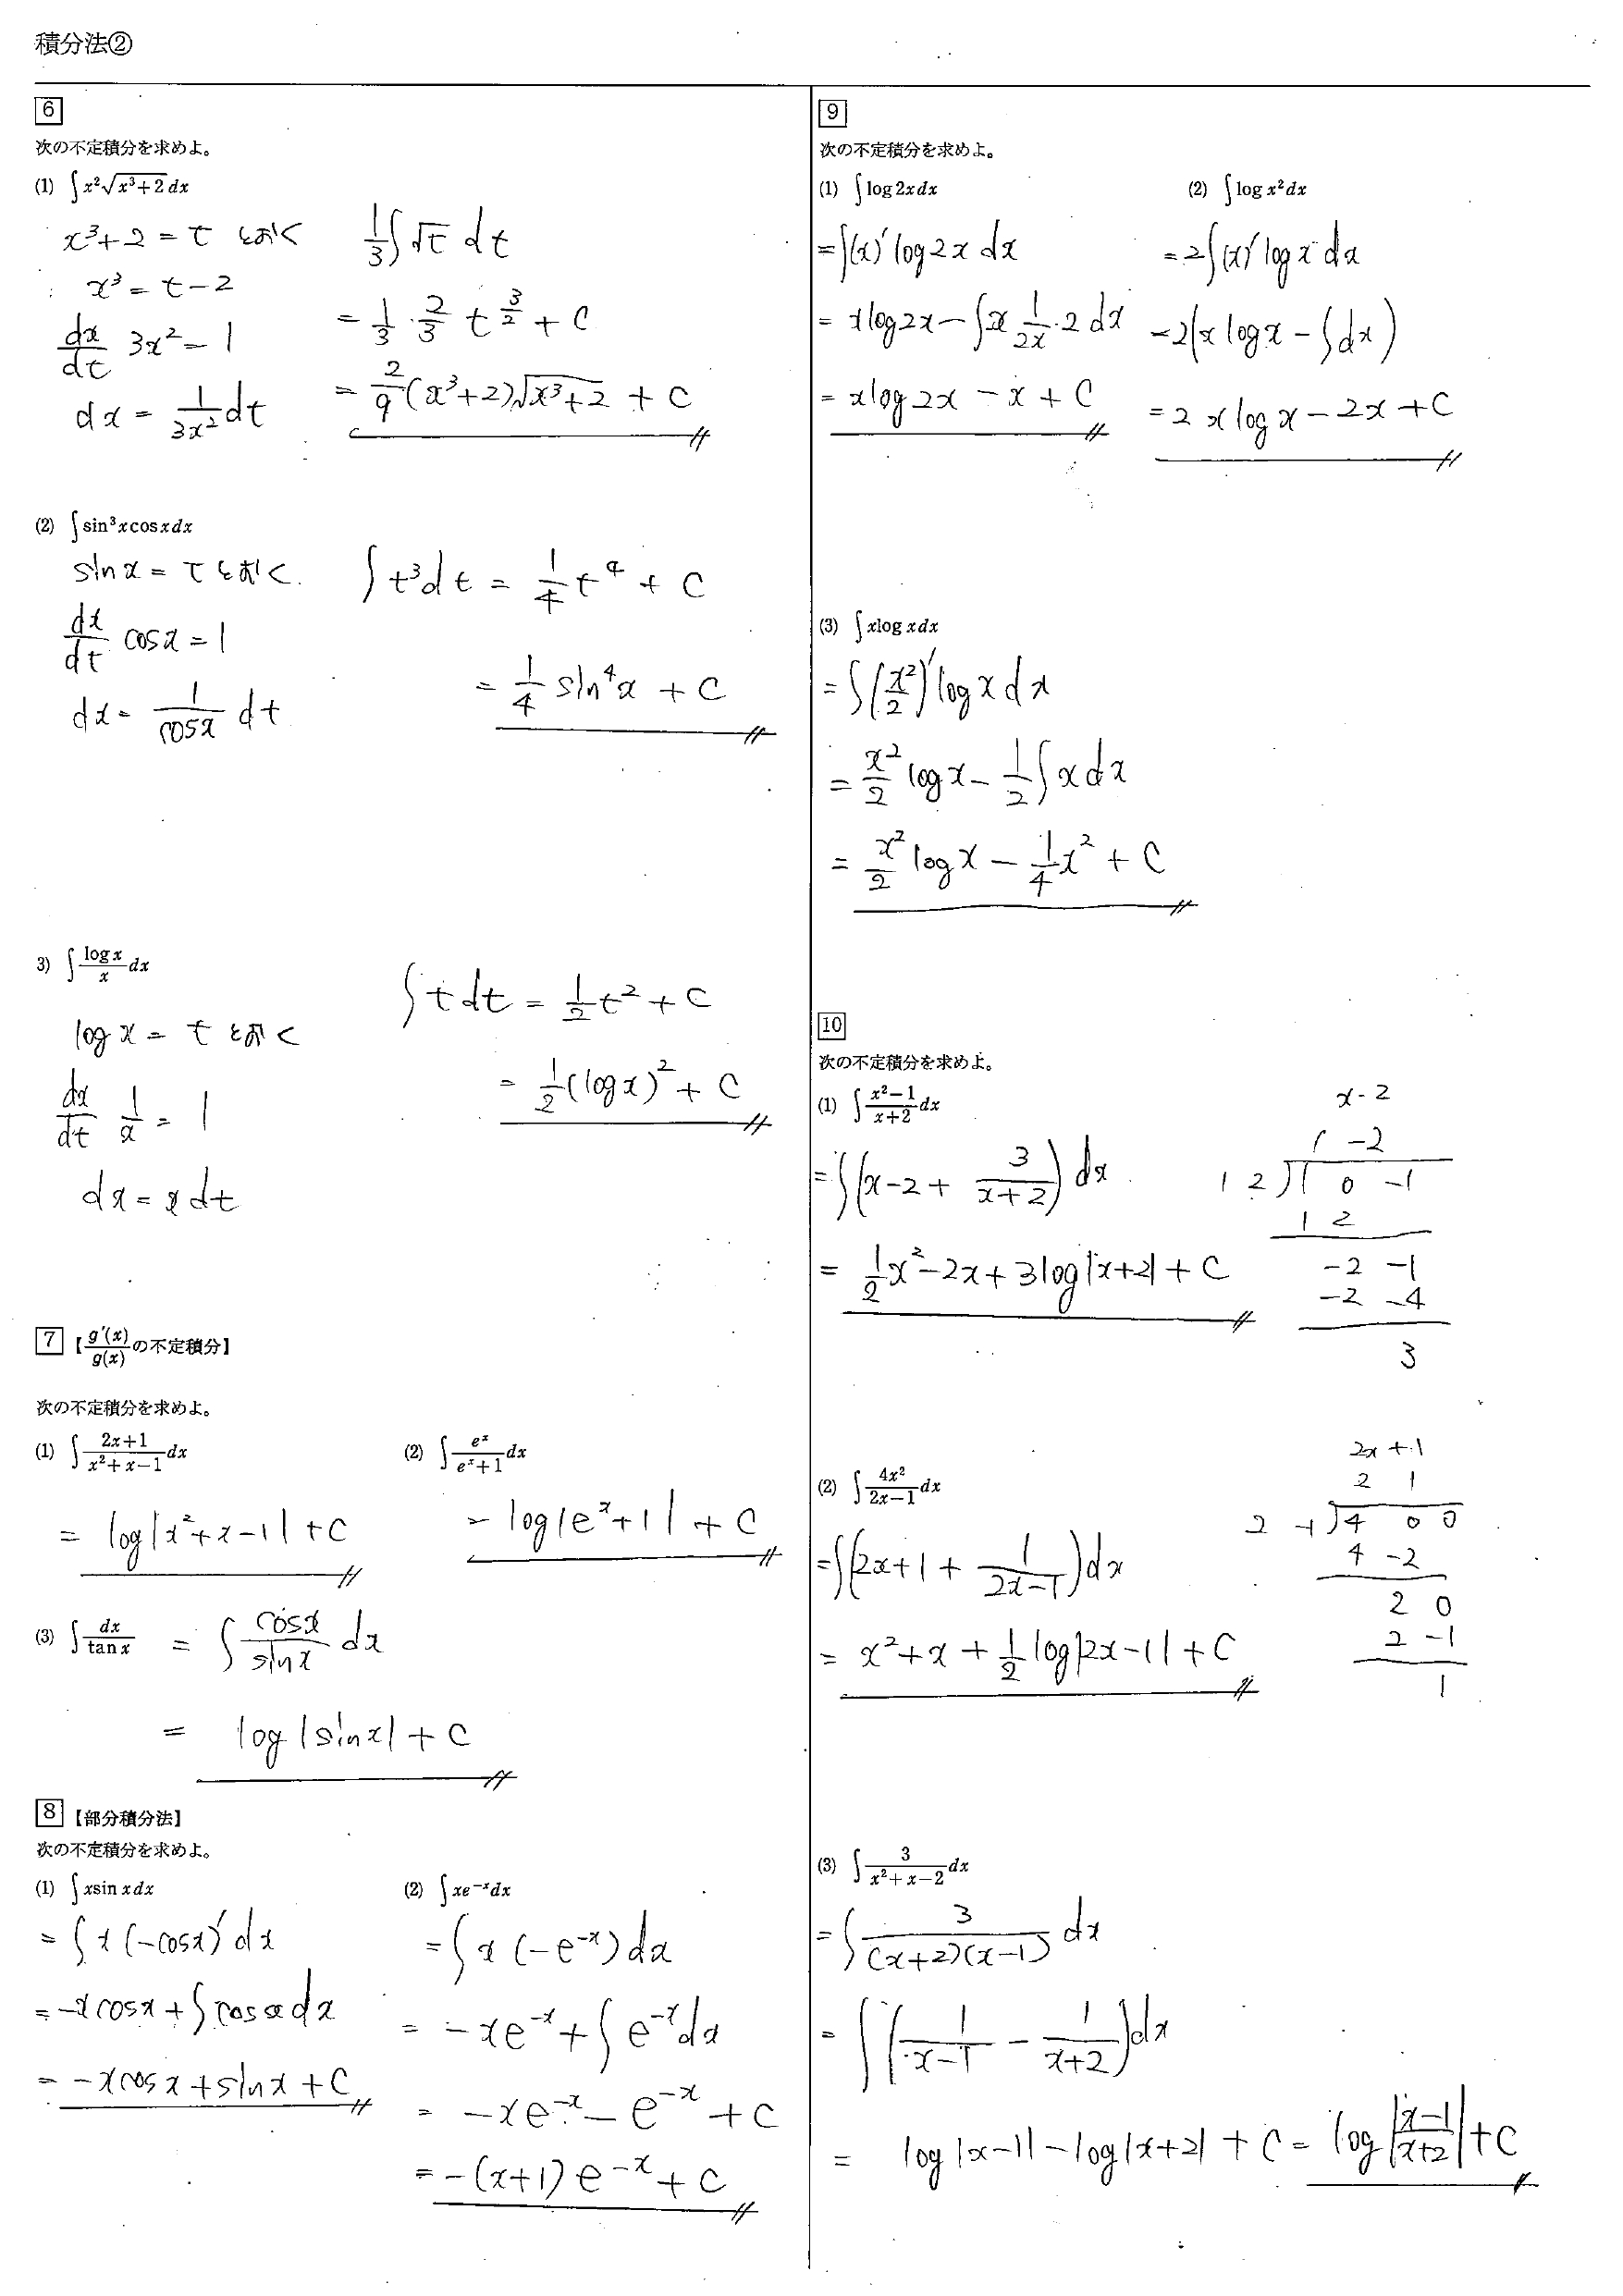 積分法②
6
次の不定積分を求めよ。
(1) ∫x²√(x³+2) dx
x³+2 = t とおく
x³ = t − 2
dx/dt 3x² = 1
dx = 1/(3x²) dt
1/3 ∫√t dt
= 1/3 · 2/3 t^(3/2) + C
= 2/9 (x³+2)√(x³+2) + C
(2) ∫sin³x cos x dx
sin x = t とおく.
dx/dt cos x = 1
dx = 1/cos x dt
∫t³dt = 1/4 t⁴ + C
= 1/4 sin⁴x + C
3) ∫(log x)/x dx
log x = t とおく
dx/dt 1/x = 1
dx = x dt
∫t dt = 1/2 t² + C
= 1/2 (log x)² + C
7 【g′(x)/g(x) の不定積分】
次の不定積分を求めよ。
(1) ∫(2x+1)/(x²+x−1) dx
= log|x²+x−1| + C
(2) ∫eˣ/(eˣ+1) dx
= log|eˣ+1| + C
(3) ∫dx/tan x = ∫cos x/sin x dx
= log|sin x| + C
8 【部分積分法】
次の不定積分を求めよ。
(1) ∫x sin x dx
= ∫x(−cos x)′dx
= −x cos x + ∫cos x dx
= −x cos x + sin x + C
(2) ∫xe⁻ˣdx
= ∫x(−e⁻ˣ)dx
= −xe⁻ˣ + ∫e⁻ˣdx
= −xe⁻ˣ − e⁻ˣ + C
= −(x+1)e⁻ˣ + C
9
次の不定積分を求めよ。
(1) ∫log 2x dx
= ∫(x)′log 2x dx
= x log 2x − ∫x 1/(2x) · 2 dx
= x log 2x − x + C
(2) ∫log x² dx
= 2∫(x)′log x dx
= 2(x log x − ∫dx)
= 2x log x − 2x + C
(3) ∫x log x dx
= ∫(x²/2)′log x dx
= x²/2 log x − 1/2 ∫x dx
= x²/2 log x − 1/4 x² + C
10
次の不定積分を求めよ。
(1) ∫(x²−1)/(x+2) dx
= ∫(x−2 + 3/(x+2)) dx
= 1/2 x² − 2x + 3log|x+2| + C
x-2
1 −2
1 2)1 0 −1
1 2
−2 −1
−2 −4
3
(2) ∫4x²/(2x−1) dx
= ∫(2x+1 + 1/(2x−1))dx
= x² + x + 1/2 log|2x−1| + C
2x+1
2 1
2 −1)4 0 0
4 −2
2 0
2 −1
1
(3) ∫3/(x²+x−2) dx
= ∫3/((x+2)(x−1)) dx
= ∫(1/(x−1) − 1/(x+2))dx
= log|x−1| − log|x+2| + C = log|(x−1)/(x+2)| + C